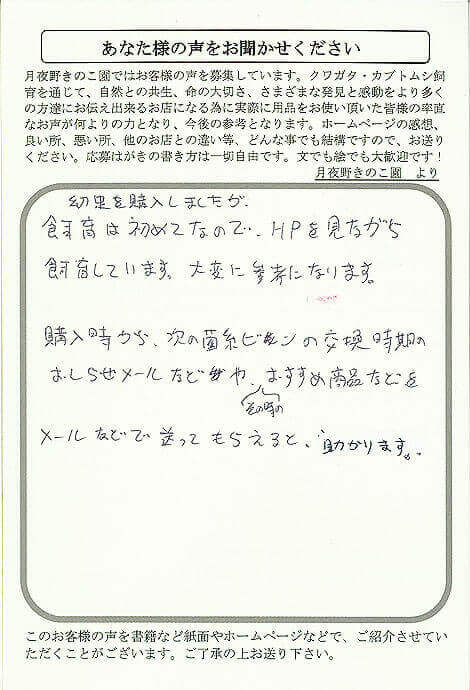 あなた様の声をお聞かせください
月夜野きのこ園ではお客様の声を募集しています。クワガタ・カブトムシ飼
育を通じて、自然との共生、命の大切さ、さまざまな発見と感動をより多く
の方達にお伝え出来るお店になる為に実際に用品をお使い頂いた皆様の率直
なお声が何よりの力となり、今後の参考となります。ホームページの感想、
良い所、悪い所、他のお店との違い等、どんな事でも結構ですので、お送り
ください。応募はがきの書き方は一切自由です。文でも絵でも大歓迎です！
月夜野きのこ園　より
幼虫を購入しましたが、
飼育は初めてなので、HPを見ながら
飼育しています。大変に参考になります。
購入時から、次の菌糸ビンの交換時期の
おしらせメールなどや、おすすめ商品などを
その時の
メールなどで送ってもらえると、助かります。
このお客様の声を書籍など紙面やホームページなどで、ご紹介させてい
ただくことがございます。ご了承の上お送り下さい。